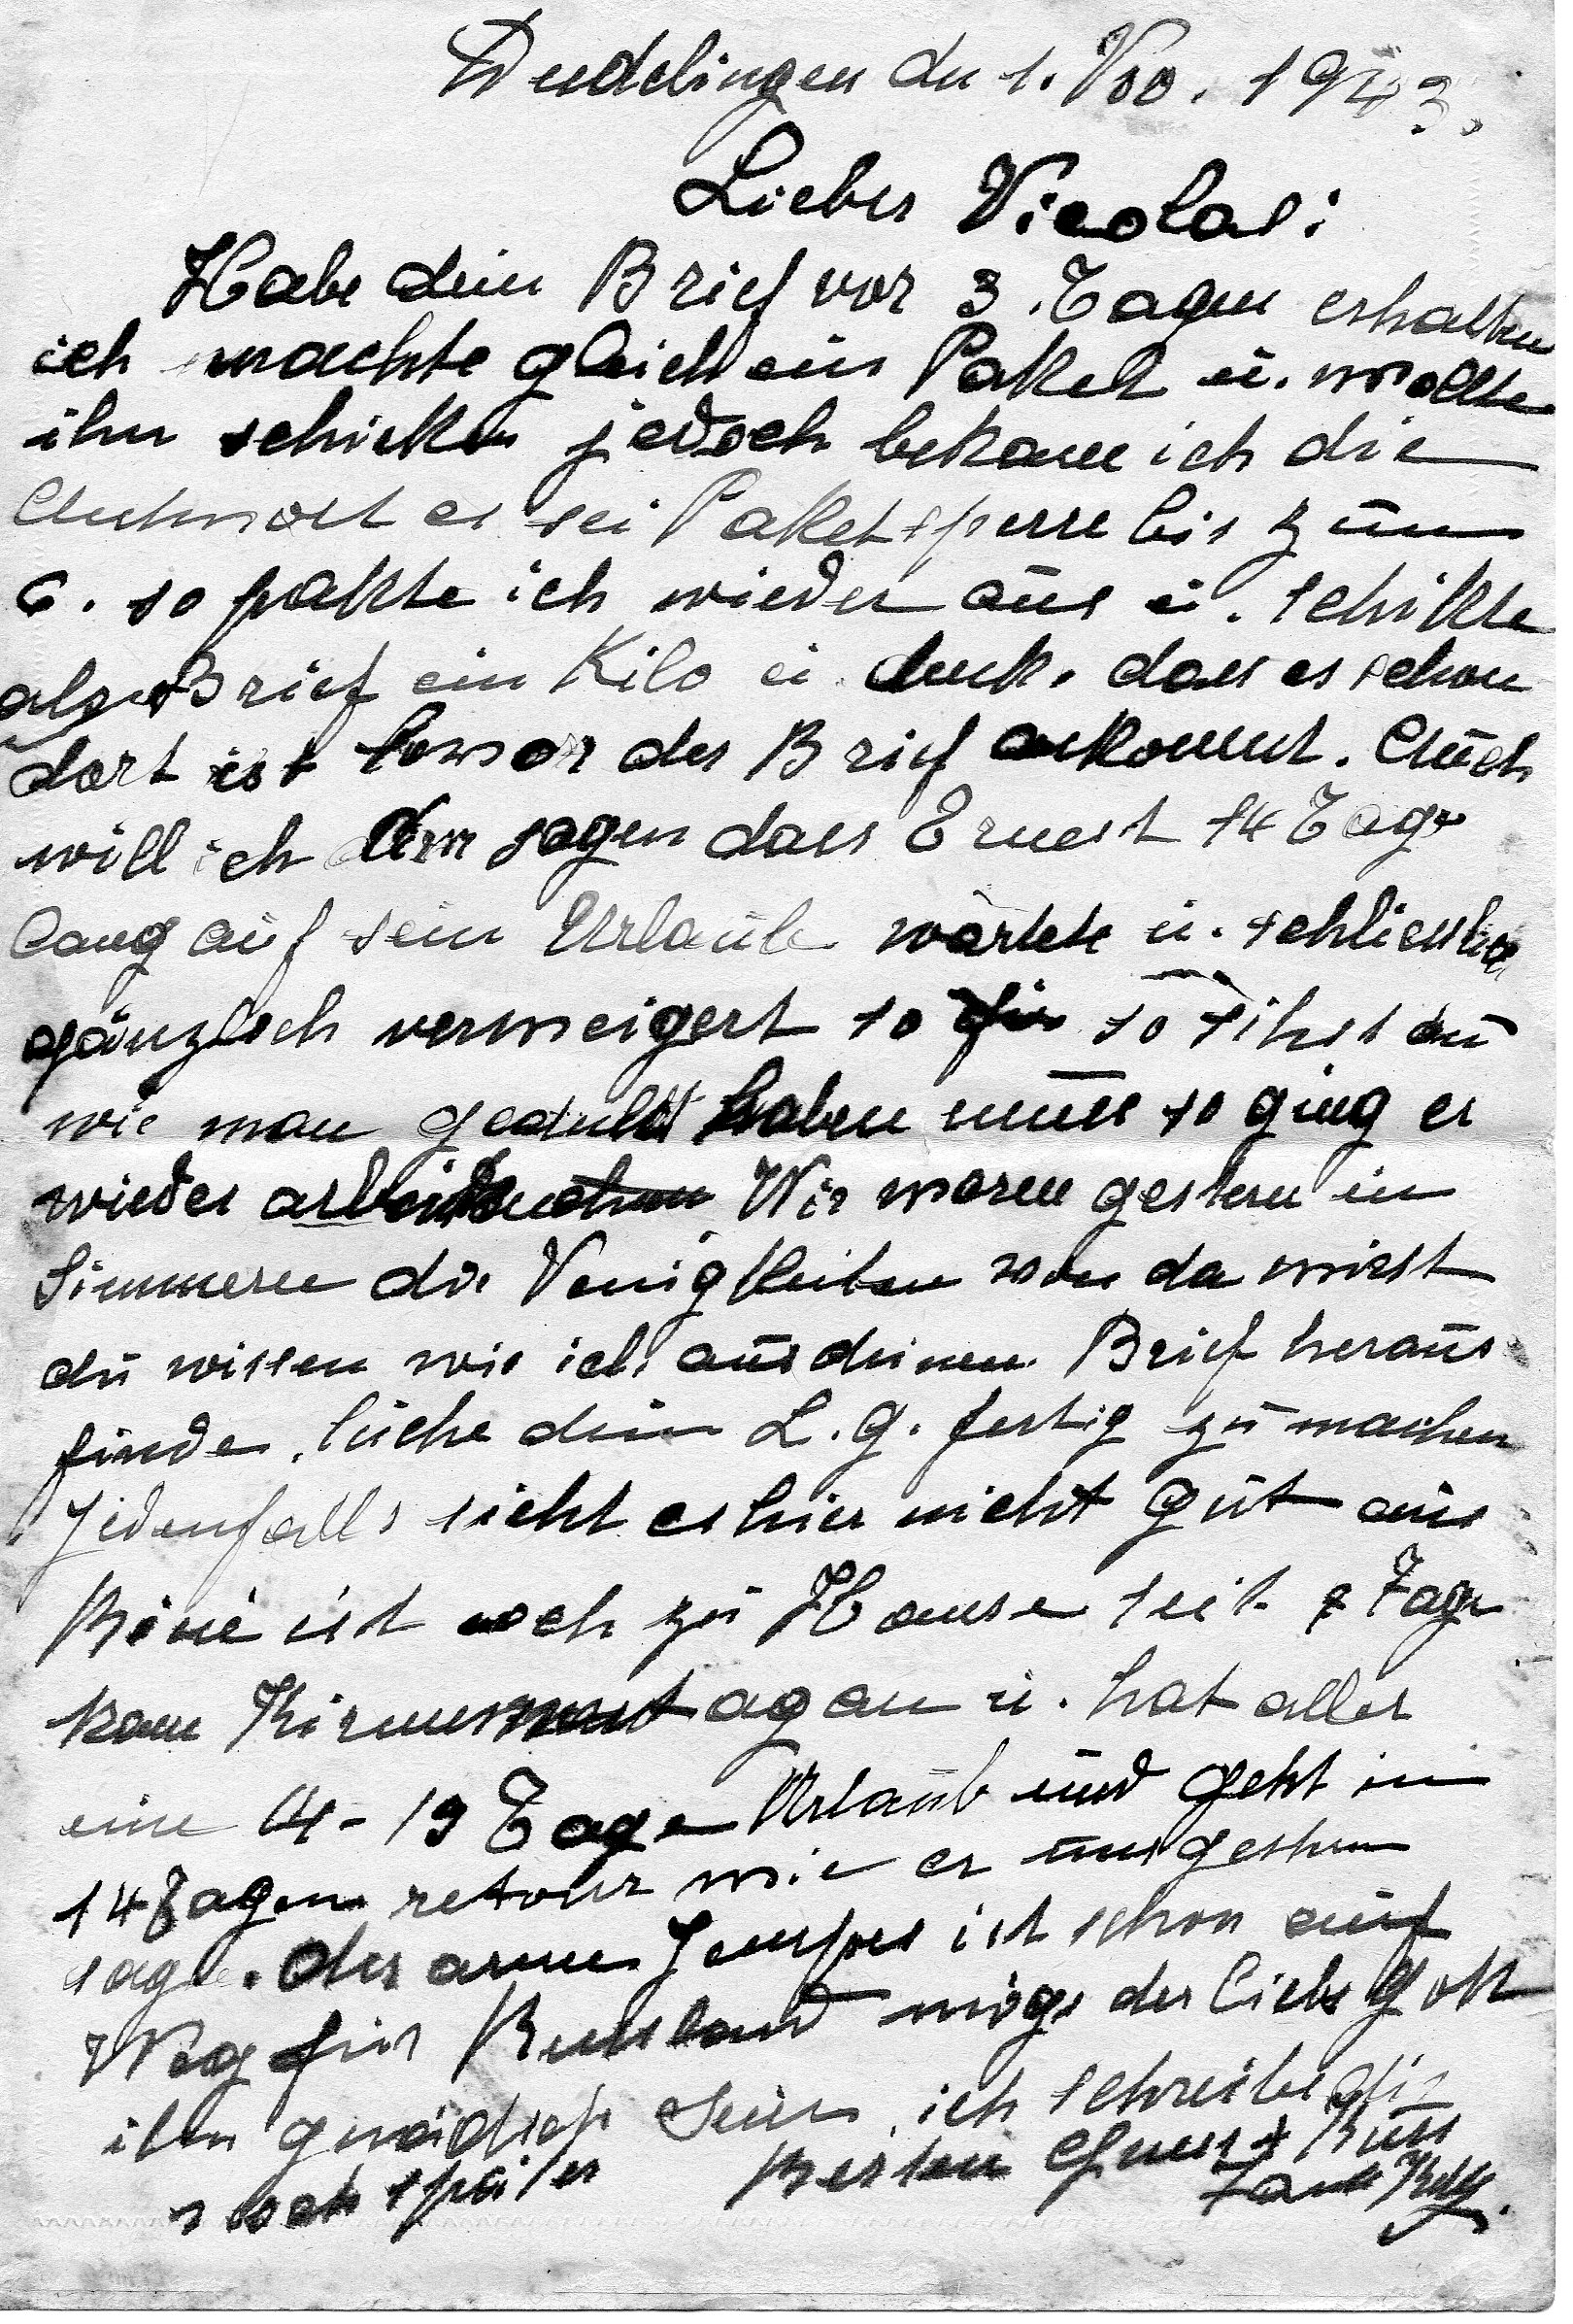 Dudelingen den 1. Nov. 1943.
Lieber Nicolas:
Habe dein Brief vor 3. Tagen erhalten
ich machte gleich ein Paket ü. wollte
ihn schicken jedoch bekam ich die
Antwort es sei Paketsperre bis zum
6. so pakte ich wieder aus ü. schikte
als Brief ein Kilo ü. denk. dass es schon
dort ist bevor der Brief ankommt. Auch
will ich dir sagen dass Ernest 14 Tage
lang auf sein Urlaub wartete ü. schliesslich
gänzlich verweigert so so sihst du
wie man geduld haben muss so ging er
wieder Wir waren gestern in
Simmern die Neuigkeiten von da wirst
du wissen wie ich aus deinem Brief heraus
finde. Suche dein L. G. fertig zu machen
Jedenfalls sieht es hier nicht gut aus
René ist noch zu Hause seit 8 Tage
kam Kirmesmontag an ü. hat aller
eine 19 Tage Urlaub und geht in
14 Tagen retour wie er uns gestern
sagte. Der arme Jempes ist schon auf
Weg für Russland möge der liebe Gott
ihm gnädich sein ich schreibe dir
noch später Besten Gruss & Kuss
Tante Ketty.